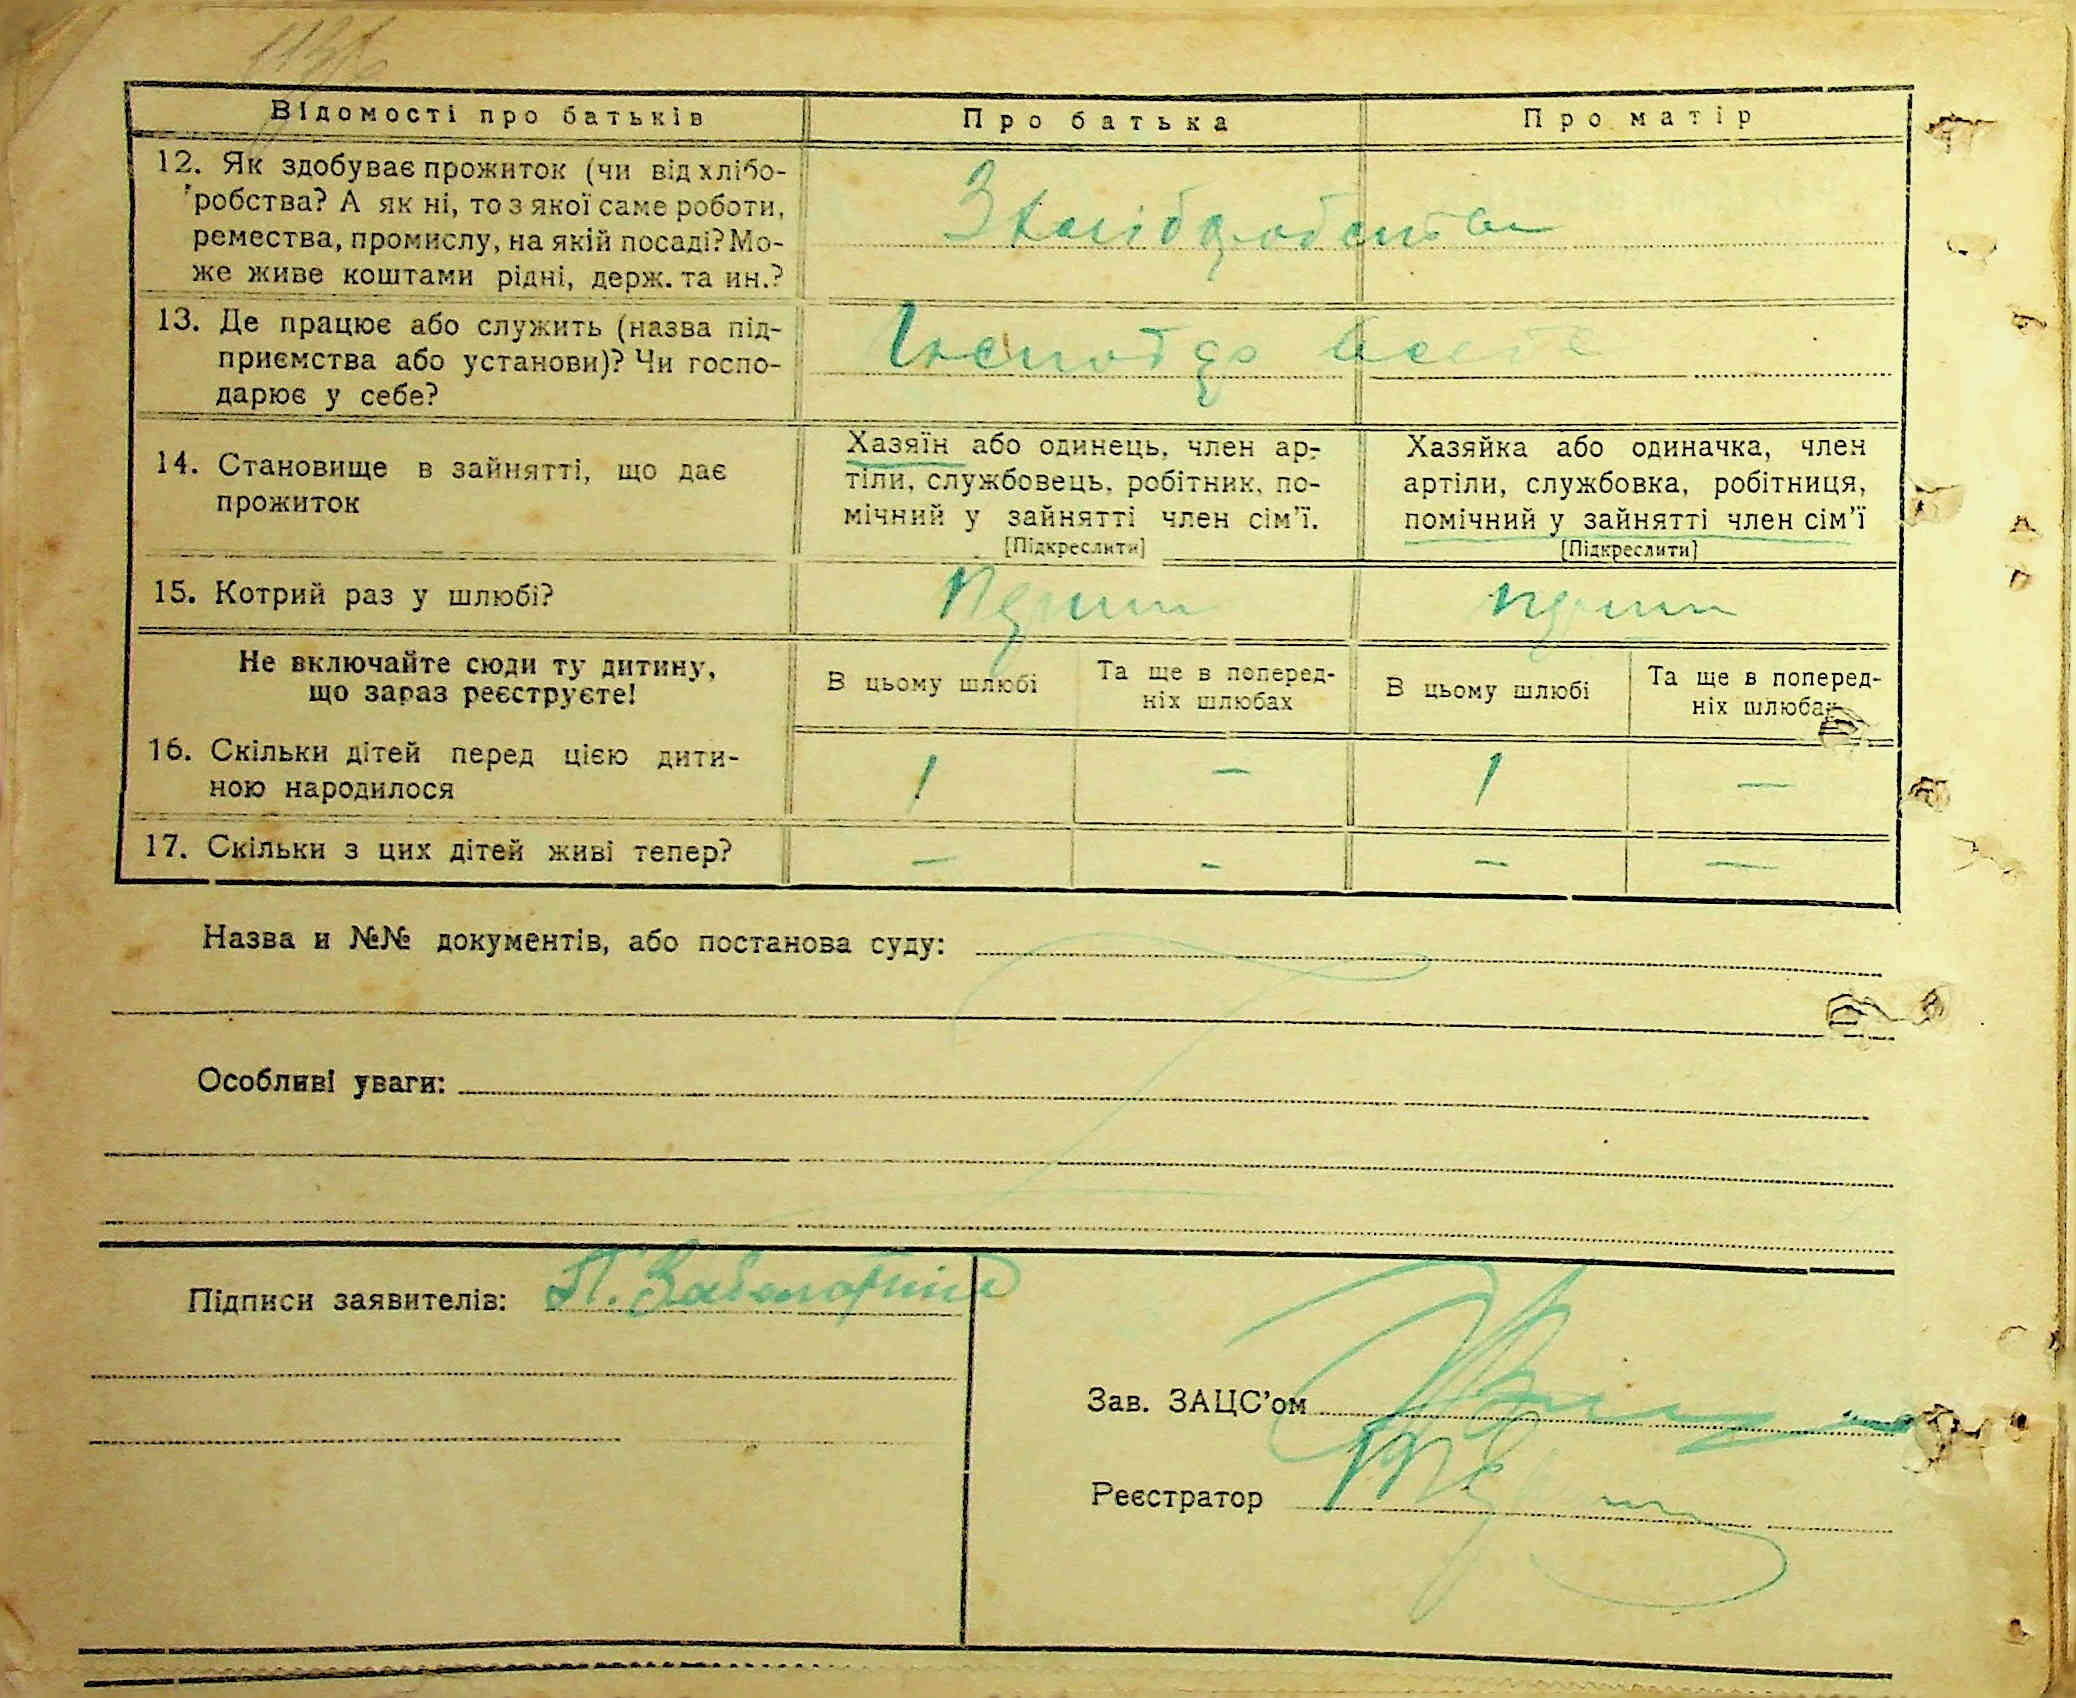 Відомості про батьків Про батька Про матір
12. Як здобуває прожиток (чи від хлібо-
робства? А як ні, то з якої саме роботи,
ремества, промислу, на якій посаді? Мо-
же живе коштами рідні, держ. та ин.?
З хліборобства
13. Де працює або служить (назва під-
приємства або установи)? Чи госпо-
дарює у себе?
14. Становище в зайнятті, що дає
прожиток
Хазяїн або одинець, член ар-
тіли, службовець, робітник, по-
мічний у зайнятті член сім'ї.
[Підкреслити]
Хазяйка або одиначка, член
артіли, службовка, робітниця,
помічний у зайнятті член сім'ї
[Підкреслити]
15. Котрий раз у шлюбі?
Не включайте сюди ту дитину,
що зараз реєструєте!
В цьому шлюбі
Та ще в поперед-
ніх шлюбах
В цьому шлюбі
Та ще в поперед-
ніх шлюбах
16. Скільки дітей перед цією дити-
ною народилося
1 — 1 —
17. Скільки з цих дітей живі тепер?
— - — —
Назва и №№ документів, або постанова суду:
Особливі уваги:
Підписи заявителів:
Зав. ЗАЦС'ом
Реєстратор